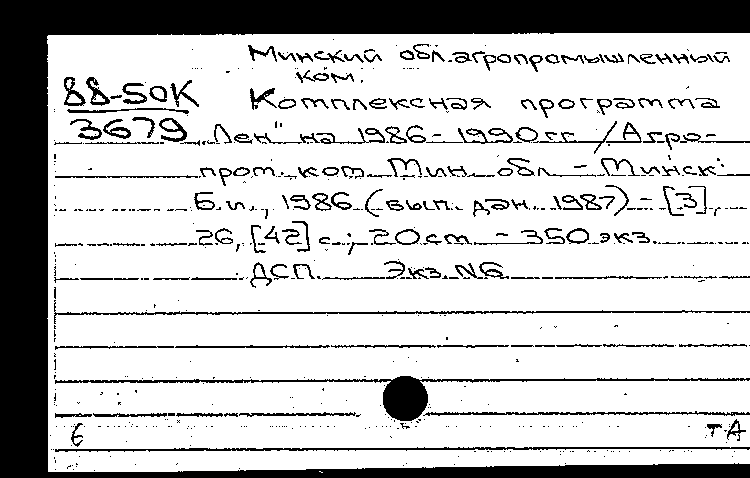 Минский обл. агропромышленный
ком.
88-50К
3679
Комплексная программа
„Лен" на 1986-1990 гг. / Агро-
пром. ком. Мин. обл. - Минск:
Б.и., 1986 (вып. дан. 1987) - [3],
26, [42] с.; 20 см - 350 экз.
ДСП. Экз. N6
6
тА